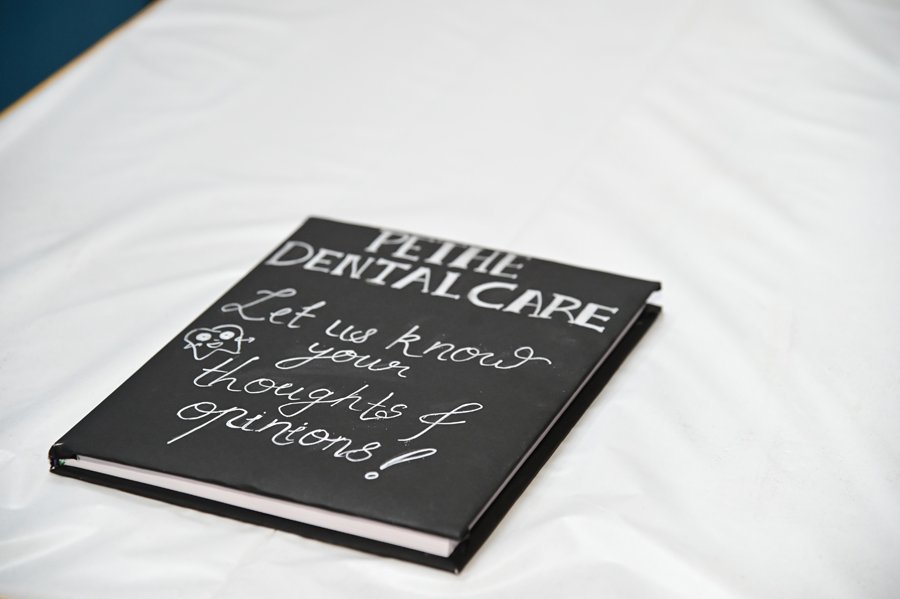 PETHE
DENTAL CARE
Let us know
your
thoughts &
opinions!